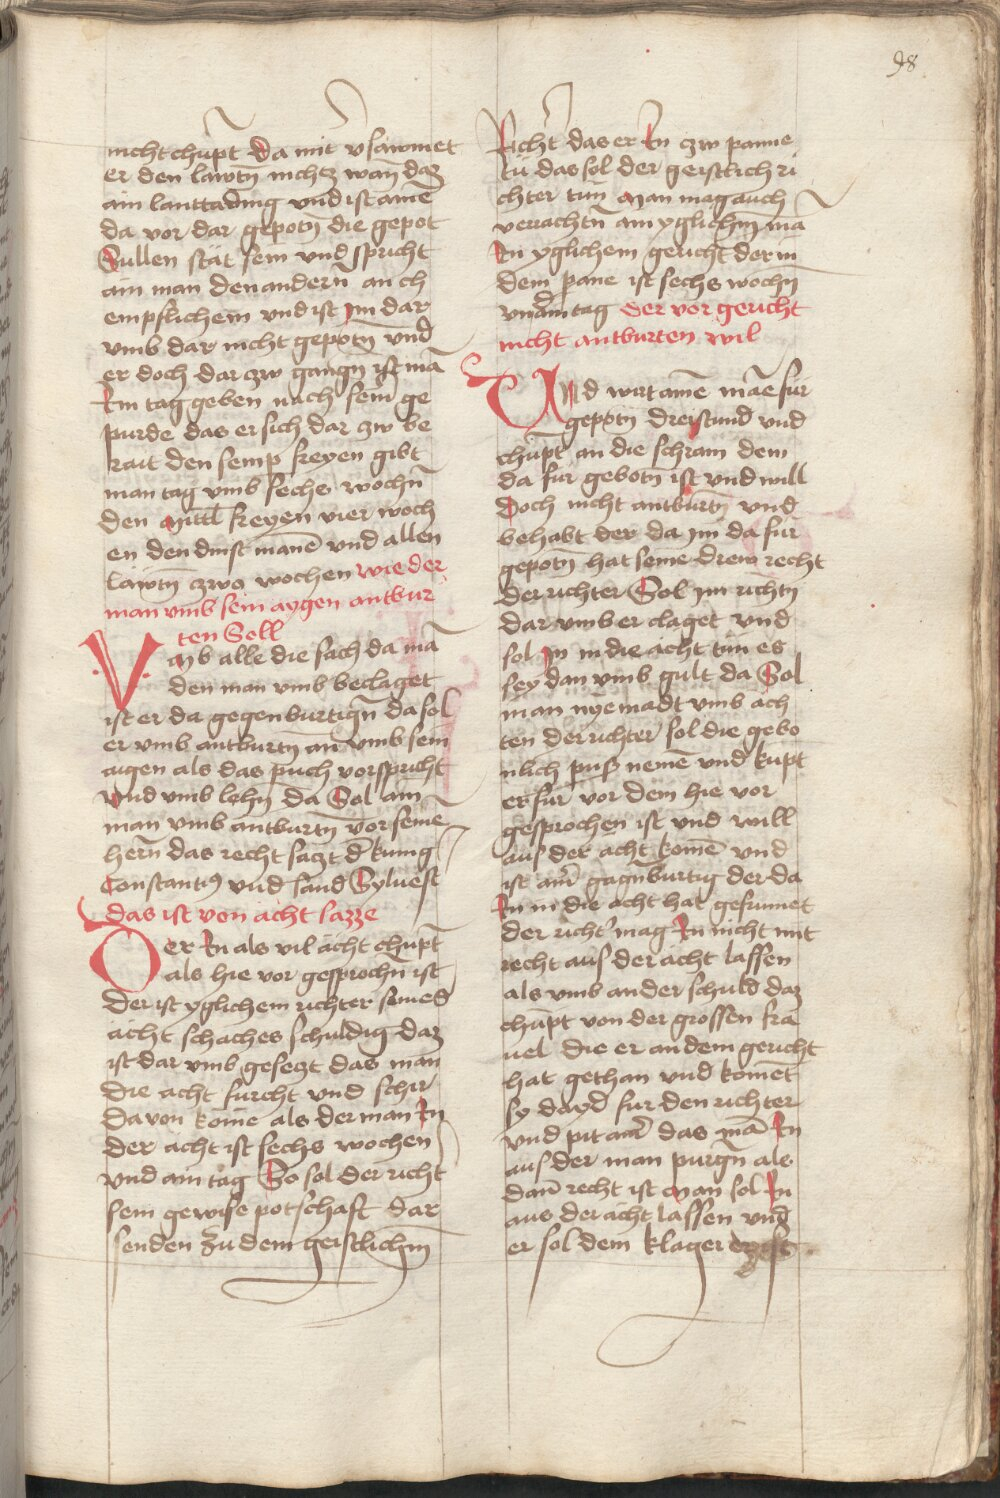 98
nicht chupt da mit v͛sawmet
er den lawtn̄ nichcz wan̄ daz
ain lanttading und ist aine͞
da vor dar gepotn̄ die gepot
Sullen stät sein und spricht
ain man den andern̄ an ch
empflichem und ist Im dar
umb dar nicht gepotn̄ und
er doch dar zw gangn̄ ist ma͞
Im tag geben nach sein̄ ge
purde das er sich dar zw be
rait den semp freyen gibt
man tag umb sechs wochn̄
den mittl freyen vier woch
en den dinst mane͞ und allen
lawtn̄ czwo wochen wie der
man umb sein aygen antbur
ten Soll
Vmb alle die sach da ma͞
den man umb beclaget
ist er da gegenburtign̄ da sol
er umb antburtn̄ an umb sein
aigen als das puch vorspricht
und umb lehn̄ da Sol ain
man umb antburtn̄ vor seine͞
hern̄ das recht saczt d͛ kunig
Constantiꝰ und sand Syluest͛
das ist von acht sazze
Der In als vil acht chupt͞
als hie vor gesprochn̄ ist
der ist yglichem richter seines
acht schaches schuldig daz
ist dar umb geseczt das man
die acht furcht und schir
davon kome als der man In
der acht ist sechs wochen
und ain tag So sol der richt͛
sein gewise potschaft dar
senden Zu dem geistlichn̄
Richt͛ das er In czw panne
tu das sol der geistlich ri
chter tun man mag auch
verachtn̄ ain yglichn̄ ma͞
In yglichem gericht der in
dem pane ist sechs wochn̄
und ain tag der vor gericht
nicht antburten wil
Und wirt aine͞ ma͞e fur
gepotn̄ dreistund und
chupt an die schram dem
da fur gebotn̄ ist und will
doch nicht antburtn̄ und
behabt der da im da fur
gepotn̄ hat seine drew recht
der richter Sol im richtn̄
dar umb er claget und
sol In in die acht tun es
sey dan umb gult da Sol
man nyemadt umb ach
ten der richter sol die gebo
nlich puß neme͞ und kupt
er fur vor dem hie vor
gesprochen ist und will
aus der acht kome͞ und
ist ain͛ gagnburtig der da
In in die acht hat gefrumet
der richt͛ mag In nicht mit
recht aus der acht lassen
als umb ander schuld daz
chupt von der grossen fra
uel die er an dem gericht
hat gethan und komet͞
sy dayd fur den richter
und pit ain͛ das ma͞ In
aus der man purgn̄ als
dan̄ recht ist man sol In
aus der acht lassen und
er sol dem klager